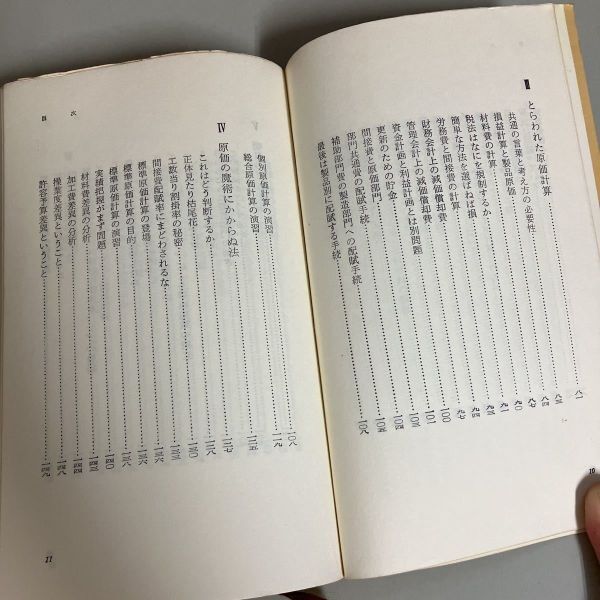 III とらわれた原価計算……八一
共通の言葉と考え方の必要性……八三
損益計算と製品原価……八四
材料費の計算……八七
税法はなにを規制するか……九〇
簡単な方法を選ばねば損……九一
労務費と間接費の計算……九三
財務会計上の減価償却費……九四
管理会計上の減価償却費……九七
資金計画と利益計画とは別問題……一〇〇
更新のための貯金……一〇一
間接費と原価部門……一〇二
部門共通費の配賦手続……一〇四
補助部門費の製造部門への配賦手続……一〇五
最後は製品別に配賦する手続……一〇八
10
個別原価計算の演習……一〇八
総合原価計算の演習……一一九
IV 原価の魔術にかからぬ法……一二五
これはどう判断するか……一二七
正体見たり枯尾花……一二八
工数当り割掛率の秘密……一三〇
間接費配賦率にまどわされるな……一三三
標準原価計算の登場……一三六
標準原価計算の目的……一三六
標準原価計算の演習……一三八
実績把握がまず問題……一四〇
材料費差異の分析……一四三
加工費差異の分析……一四四
操業度差異ということ……一四八
許容予算差異ということ……一四九
目次
11